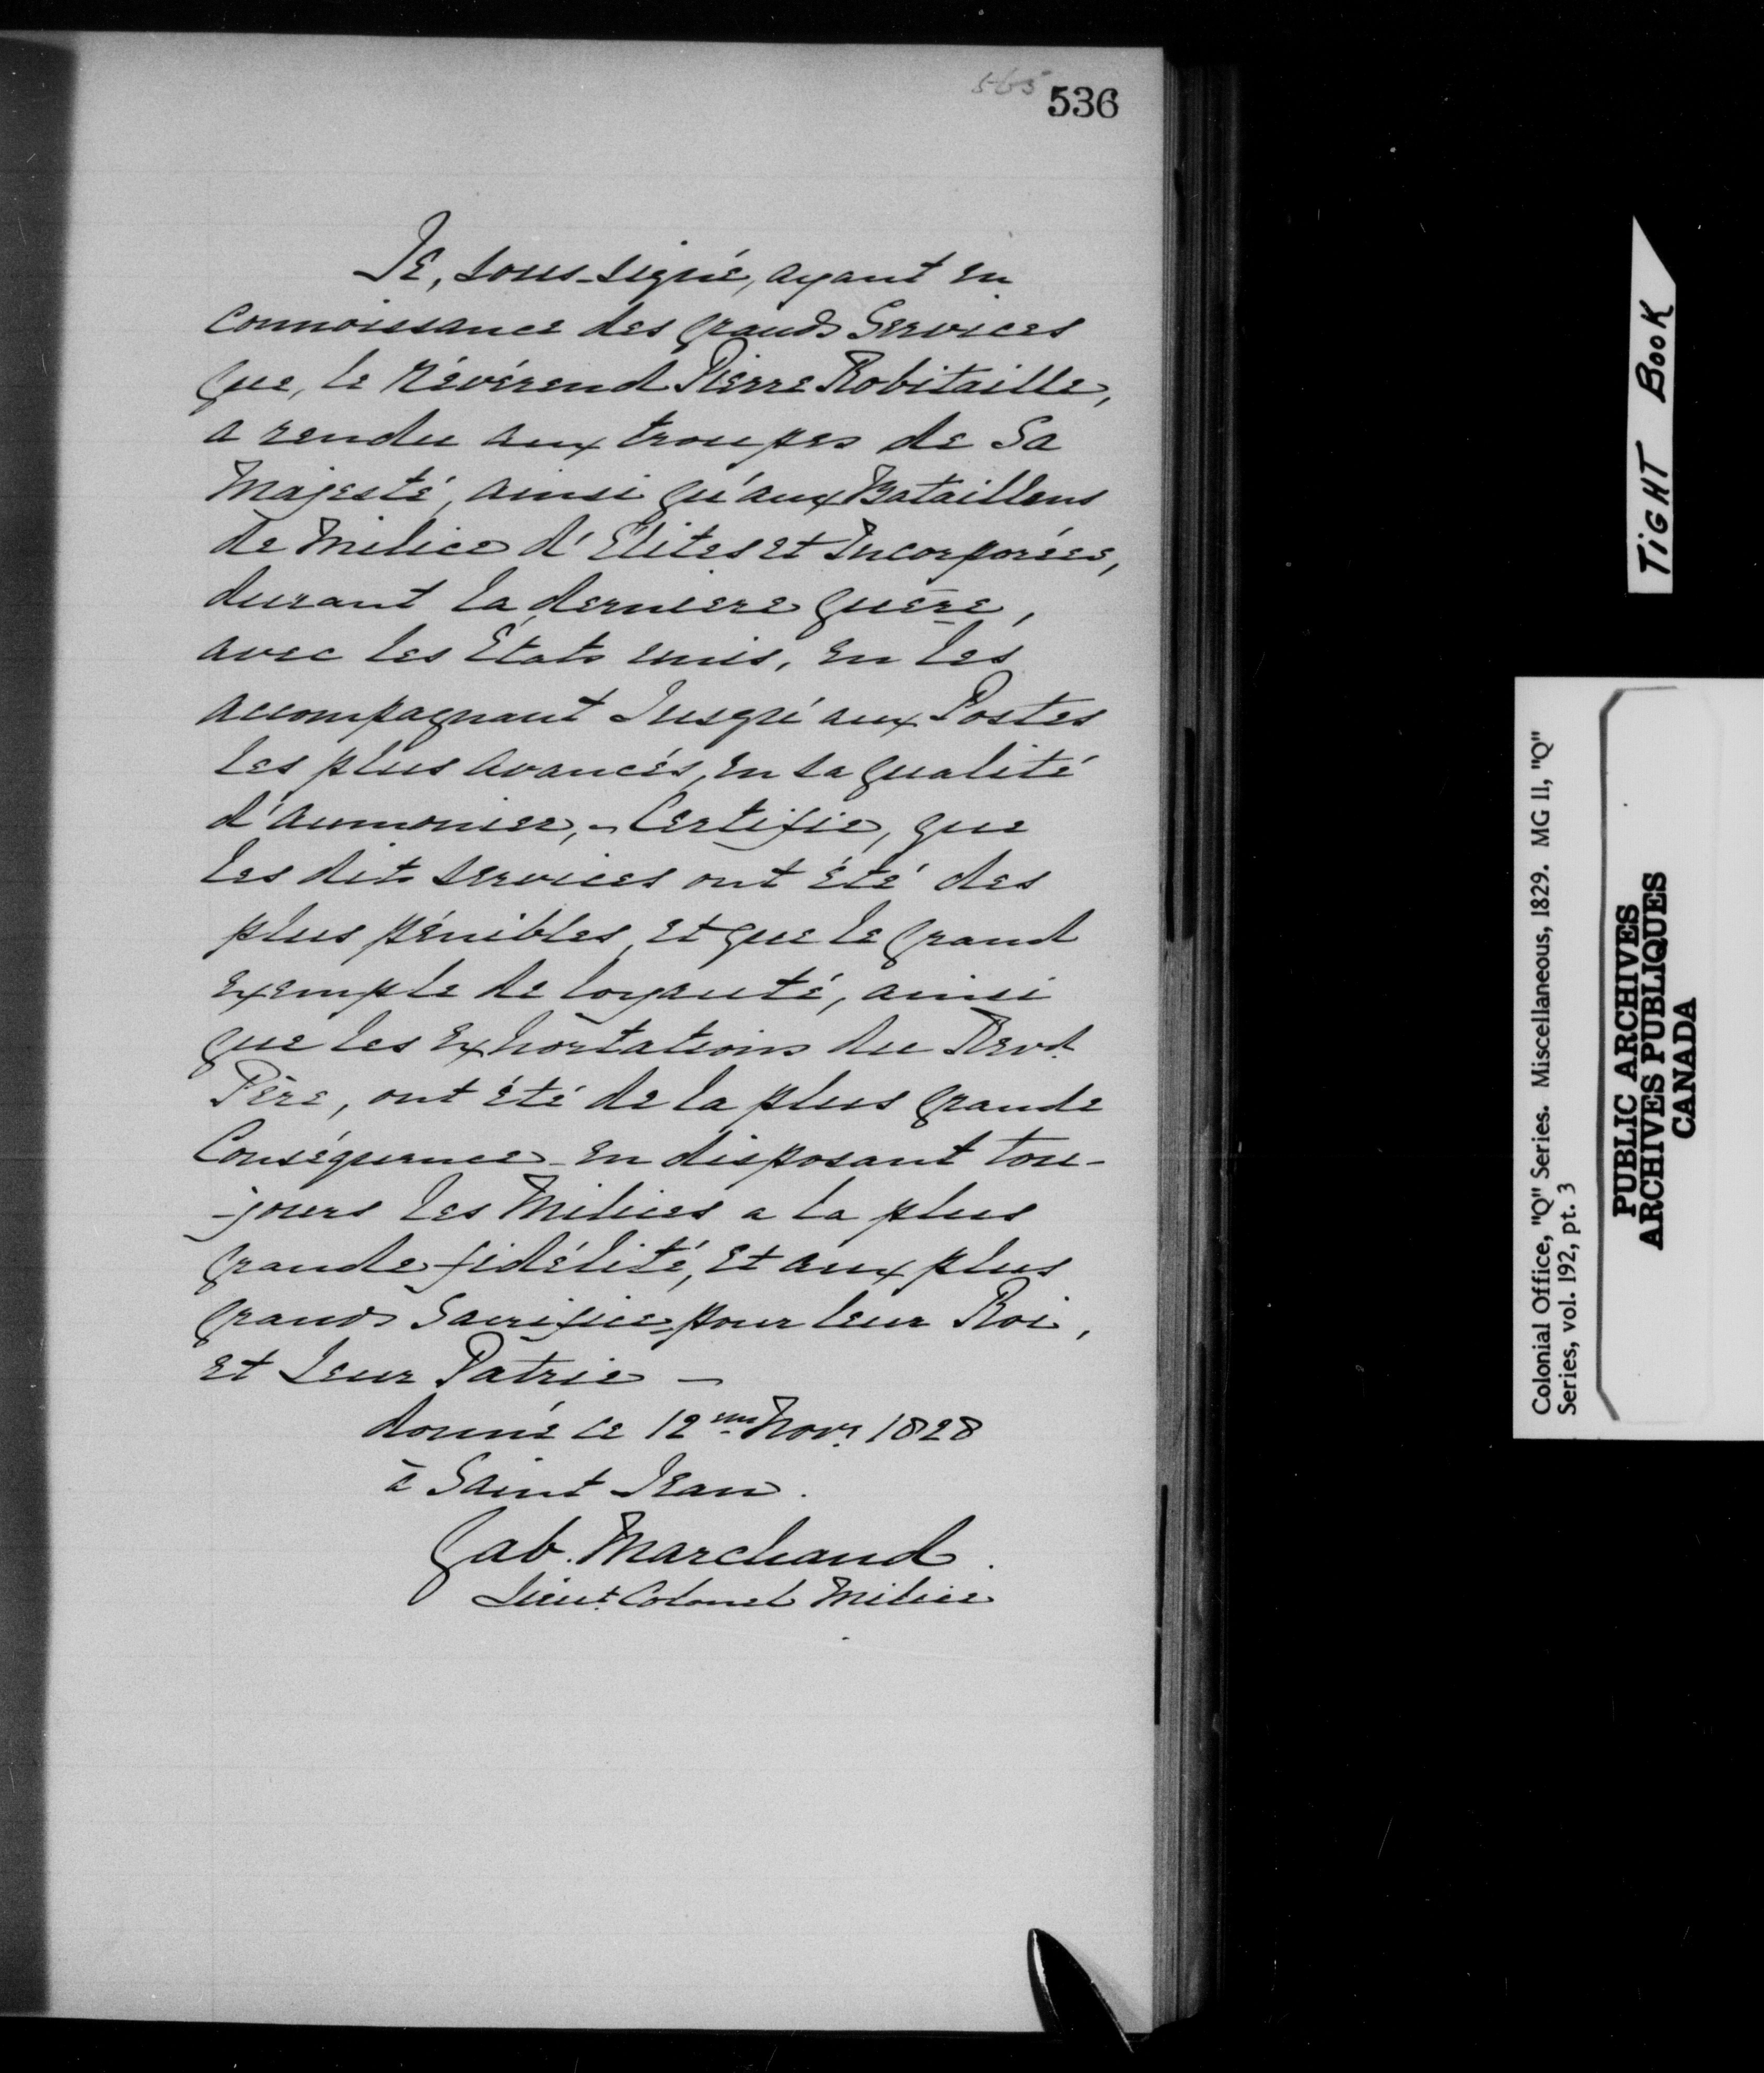 565 536
Je, sous-signé, ayant eu
connoissance des grands Services
que, le Révérend Pierre Robitaille,
a rendu aux troupes de Sa
Majesté, ainsi qu'aux Bataillons
de Milice d'Elites et Incorporées,
durant la derniere guère,
avec les Etats unis, en les
accompagnant Jusqu'aux Postes
les plus avancés, en sa qualité
d'aumonier, - Certifie, que
les dits services ont été des
plus pénibles, et que le grand
exemple de loyauté, ainsi
que les exhortations du Revd.
Père, ont été de la plus grande
Conséquence - en disposant tou-
-jours les Milices a la plus
grande fidélité, et aux plus
grands Sacrifices pour leur Roi,
et Leur Patrie -
donné le 12me Novr. 1828
à Saint Jean.
Gab. Marchand.
Lieut. Colonel Milice
TIGHT BOOK
Colonial Office, "Q" Series. Miscellaneous, 1829. MG 11, "Q"
Series, vol. 192, pt. 3
PUBLIC ARCHIVES
ARCHIVES PUBLIQUES
CANADA